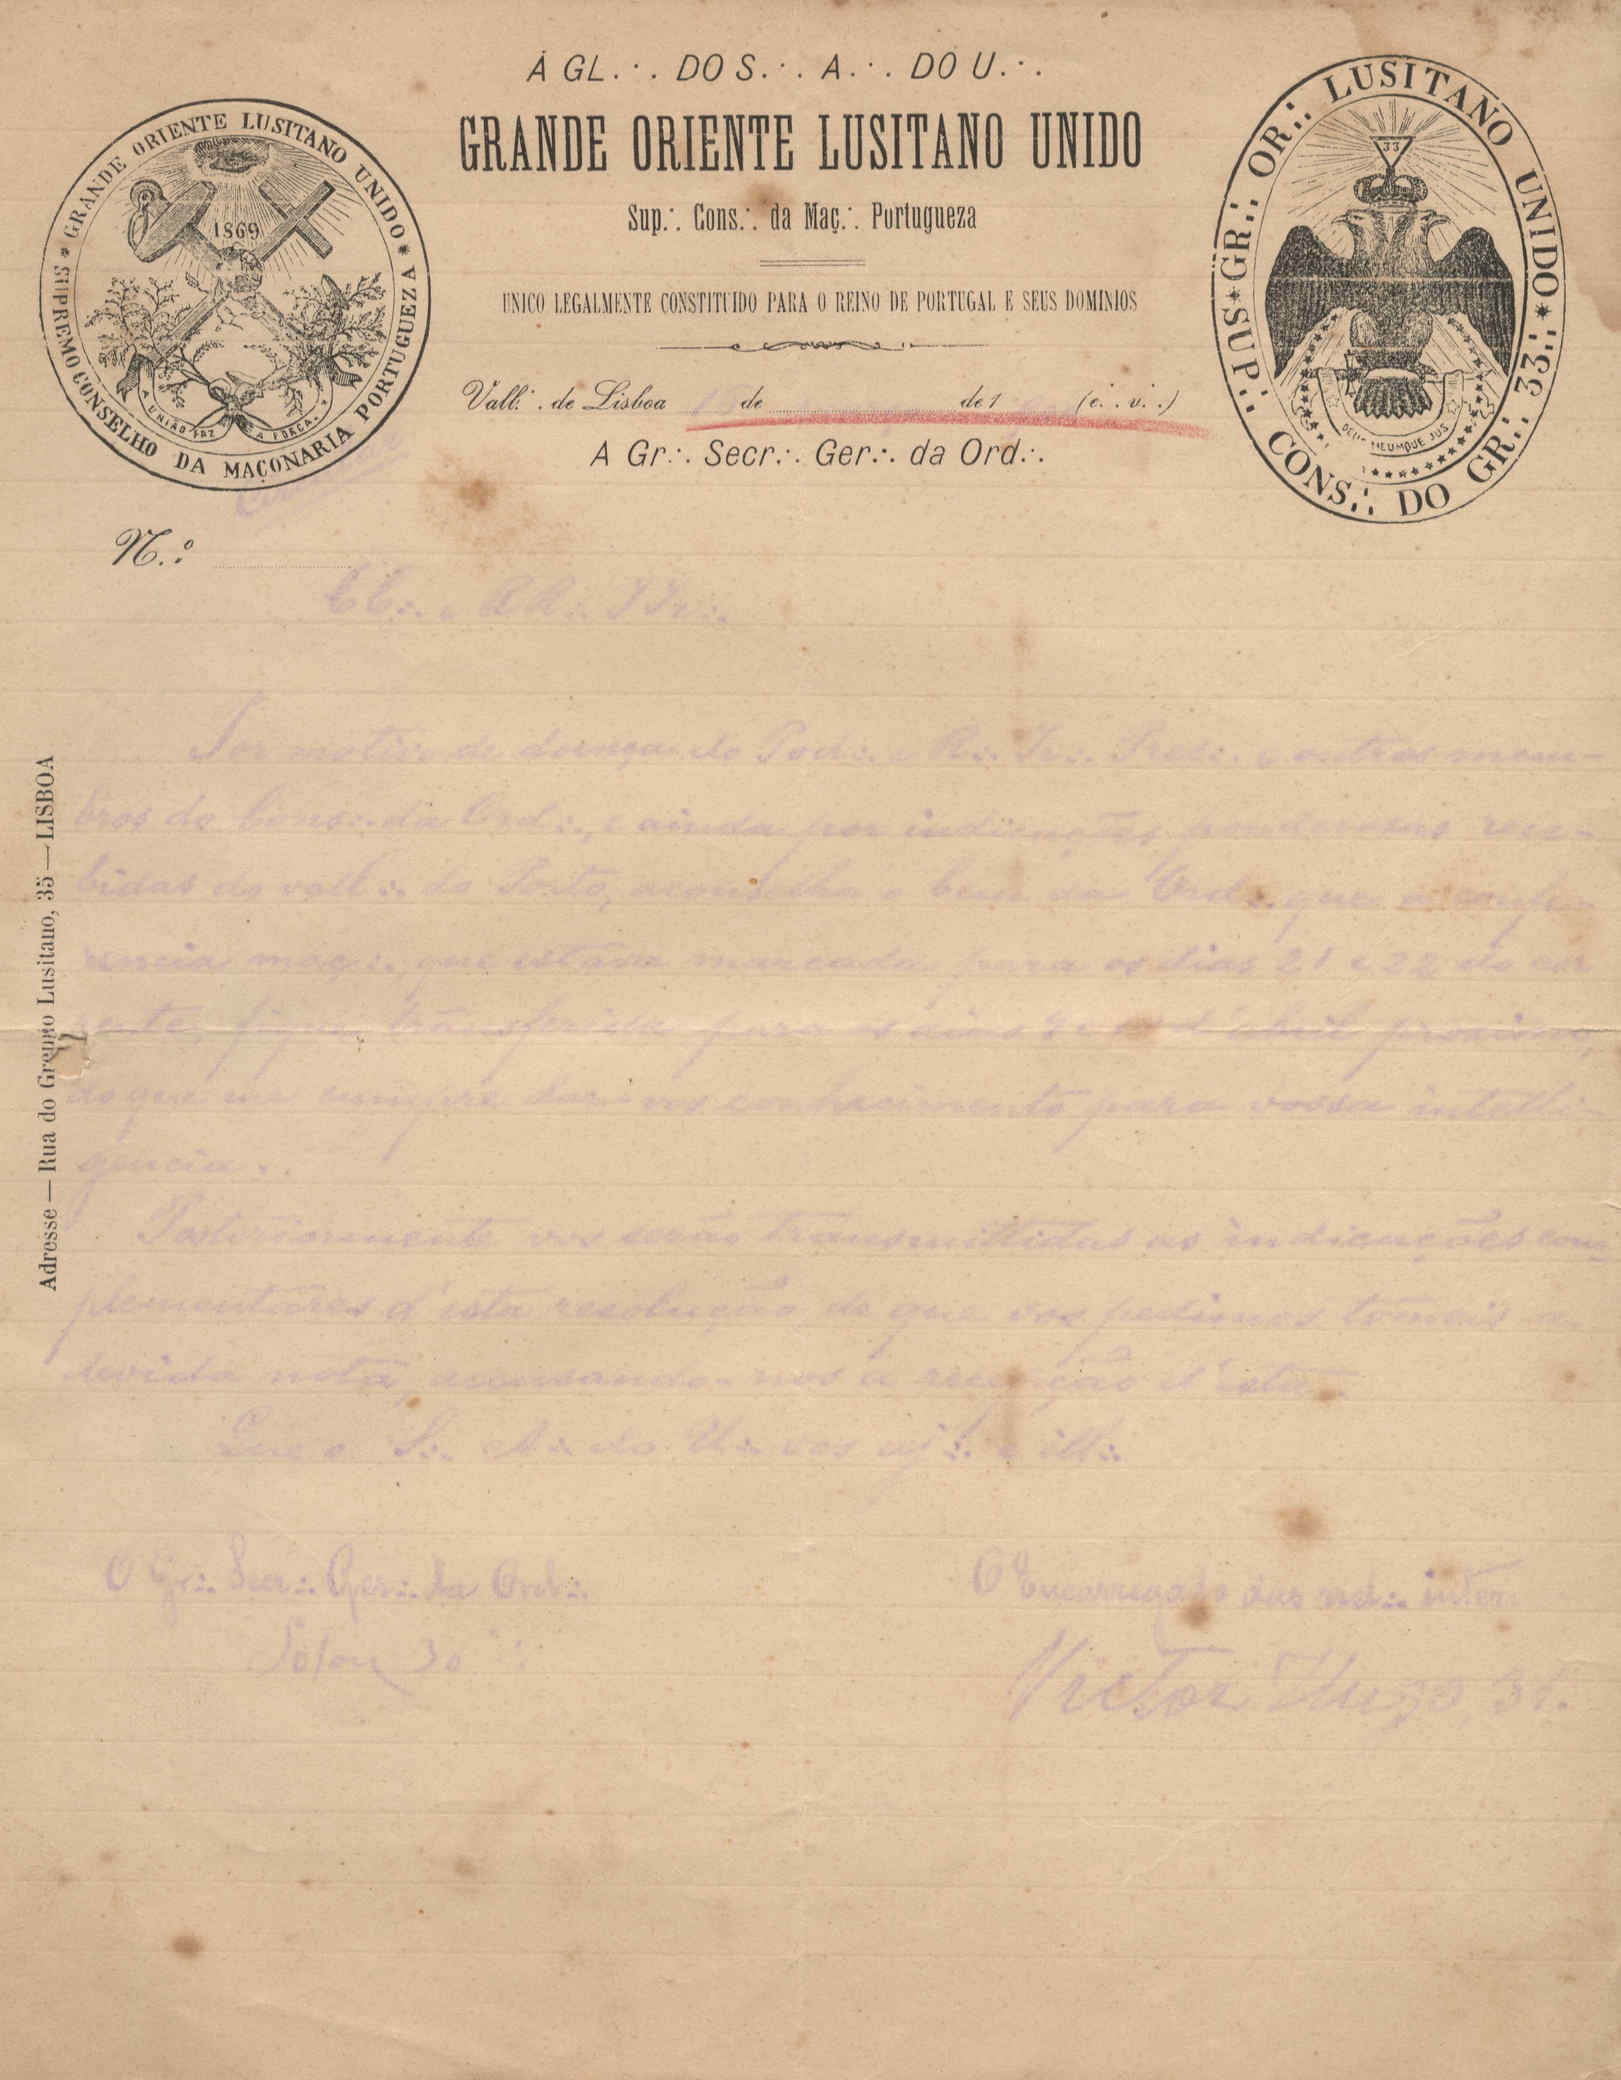 Á GL.·. DO S.·. A.·. DO U.·.
GRANDE ORIENTE LUSITANO UNIDO
Sup.·. Cons.·. da Maç.·. Portugueza
UNICO LEGALMENTE CONSTITUIDO PARA O REINO DE PORTUGAL E SEUS DOMINIOS
Vall.·. de Lisboa de de 1 (e.·. v.·.)
A Gr.·. Secr.·. Ger.·. da Ord.·.
* GRANDE ORIENTE LUSITANO UNIDO *
SUPREMO CONSELHO DA MAÇONARIA PORTUGUEZA
1869
A UNIÃO FAZ A FORÇA
SUP.·. CONS.·. DO GR.·. 33.·.
* GR.·. OR.·. LUSITANO UNIDO *
33
DEUS MEUMQUE JUS
N.º
CC.·. e RR.·. IIr.·.
Por motivo de doença do Pod.·. e R.·. Ir.·. Pres.·. e outros mem-
bros do Cons.·. da Ord.·., e ainda por indicações ponderosas rece-
bidas do vall.·. do Porto, aconselha o bem da Ord.·. que a confe-
rencia maç.·. que estava marcada para os dias 21 e 22 do cor
rente, fique transferida para os dias d'abril proximo,
do que me cumpre dar-vos conhecimento para vossa intelli-
gencia.
Posteriormente vos serão transmittidas as indicações com-
plementares d'esta resolução, de que vos pedimos tomeis a
devida nota, accusando-nos a recepção d'esta.
Que o S.·. A.·. do U.·. vos aj.·. e ill.·.
O Gr.·. Secr.·. Ger.·. da Ord.·.
Solon 30
O Encarregado das rel.·. inter.
Victor Hugo, 31.
Adresse — Rua do Gremio Lusitano, 35 — LISBOA